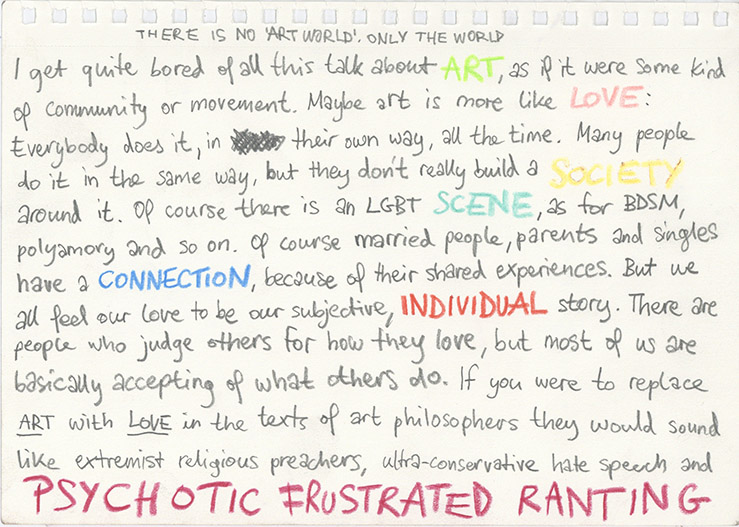 THERE IS NO 'ART WORLD'. ONLY THE WORLD
I get quite bored of all this talk about ART, as if it were some kind
of community or movement. Maybe art is more like LOVE:
Everybody does it, in their own way, all the time. Many people
do it in the same way, but they don't really build a SOCIETY
around it. Of course there is an LGBT SCENE, as for BDSM,
polyamory and so on. Of course married people, parents and singles
have a CONNECTION, because of their shared experiences. But we
all feel our love to be our subjective, INDIVIDUAL story. There are
people who judge others for how they love, but most of us are
basically accepting of what others do. If you were to replace
ART with LOVE in the texts of art philosophers they would sound
like extremist religious preachers, ultra-conservative hate speech and
PSYCHOTIC FRUSTRATED RANTING